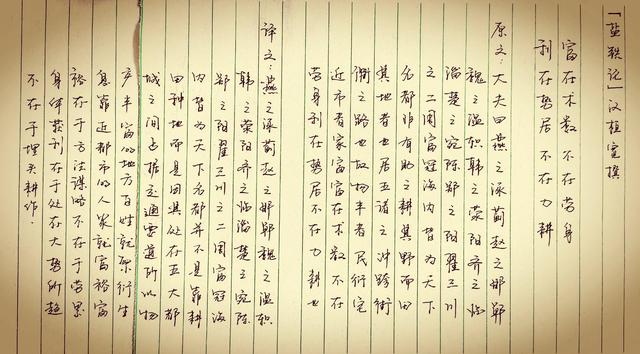 「盐铁论」汉桓宽撰
富在术数 不在劳身
利在势居 不在力耕
原文:大夫曰燕之涿蓟赵之邯郸
魏之温轵韩之荥阳齐之临
淄楚之宛陈郑之阳翟三川
之二周富冠海内皆为天下
名都非有助之耕其野而田
其地者也居五诸之冲跨街
衢之路也故物丰者民衍宅
近市者家富富在术数不在
劳身利在势居不在力耕也
译文:燕之涿蓟赵之邯郸魏之温轵
韩之荥阳齐之临淄楚之宛陈
郑之阳翟三川之二周富冠海
内皆为天下名都并不是靠耕
田种地而是因其处在五大都
城之间占据交通要道所以物
产丰富的地方百姓就聚衍生
息靠近都市的人家就富裕富
裕在于方法谋略不在于劳累
身体获利在于处在大势所趋
不在于埋头耕作.